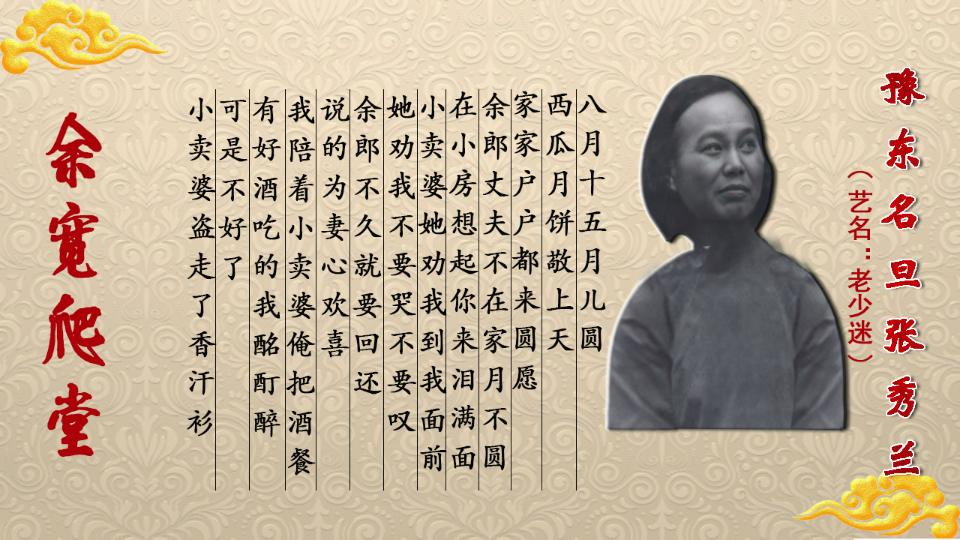 豫东名旦张秀兰
（艺名：老少迷）
八月十五月儿圆
西瓜月饼敬上天
家家户户都来圆愿
余郎丈夫不在家月不圆
在小房想起你来泪满面
小卖婆她劝我到我面前
她劝我不要哭不要叹
余郎不久就要回还
说的为妻心欢喜
我陪着小卖婆俺把酒餐
有好酒吃的我酩酊醉
可是不好了
小卖婆盗走了香汗衫
余宽爬堂